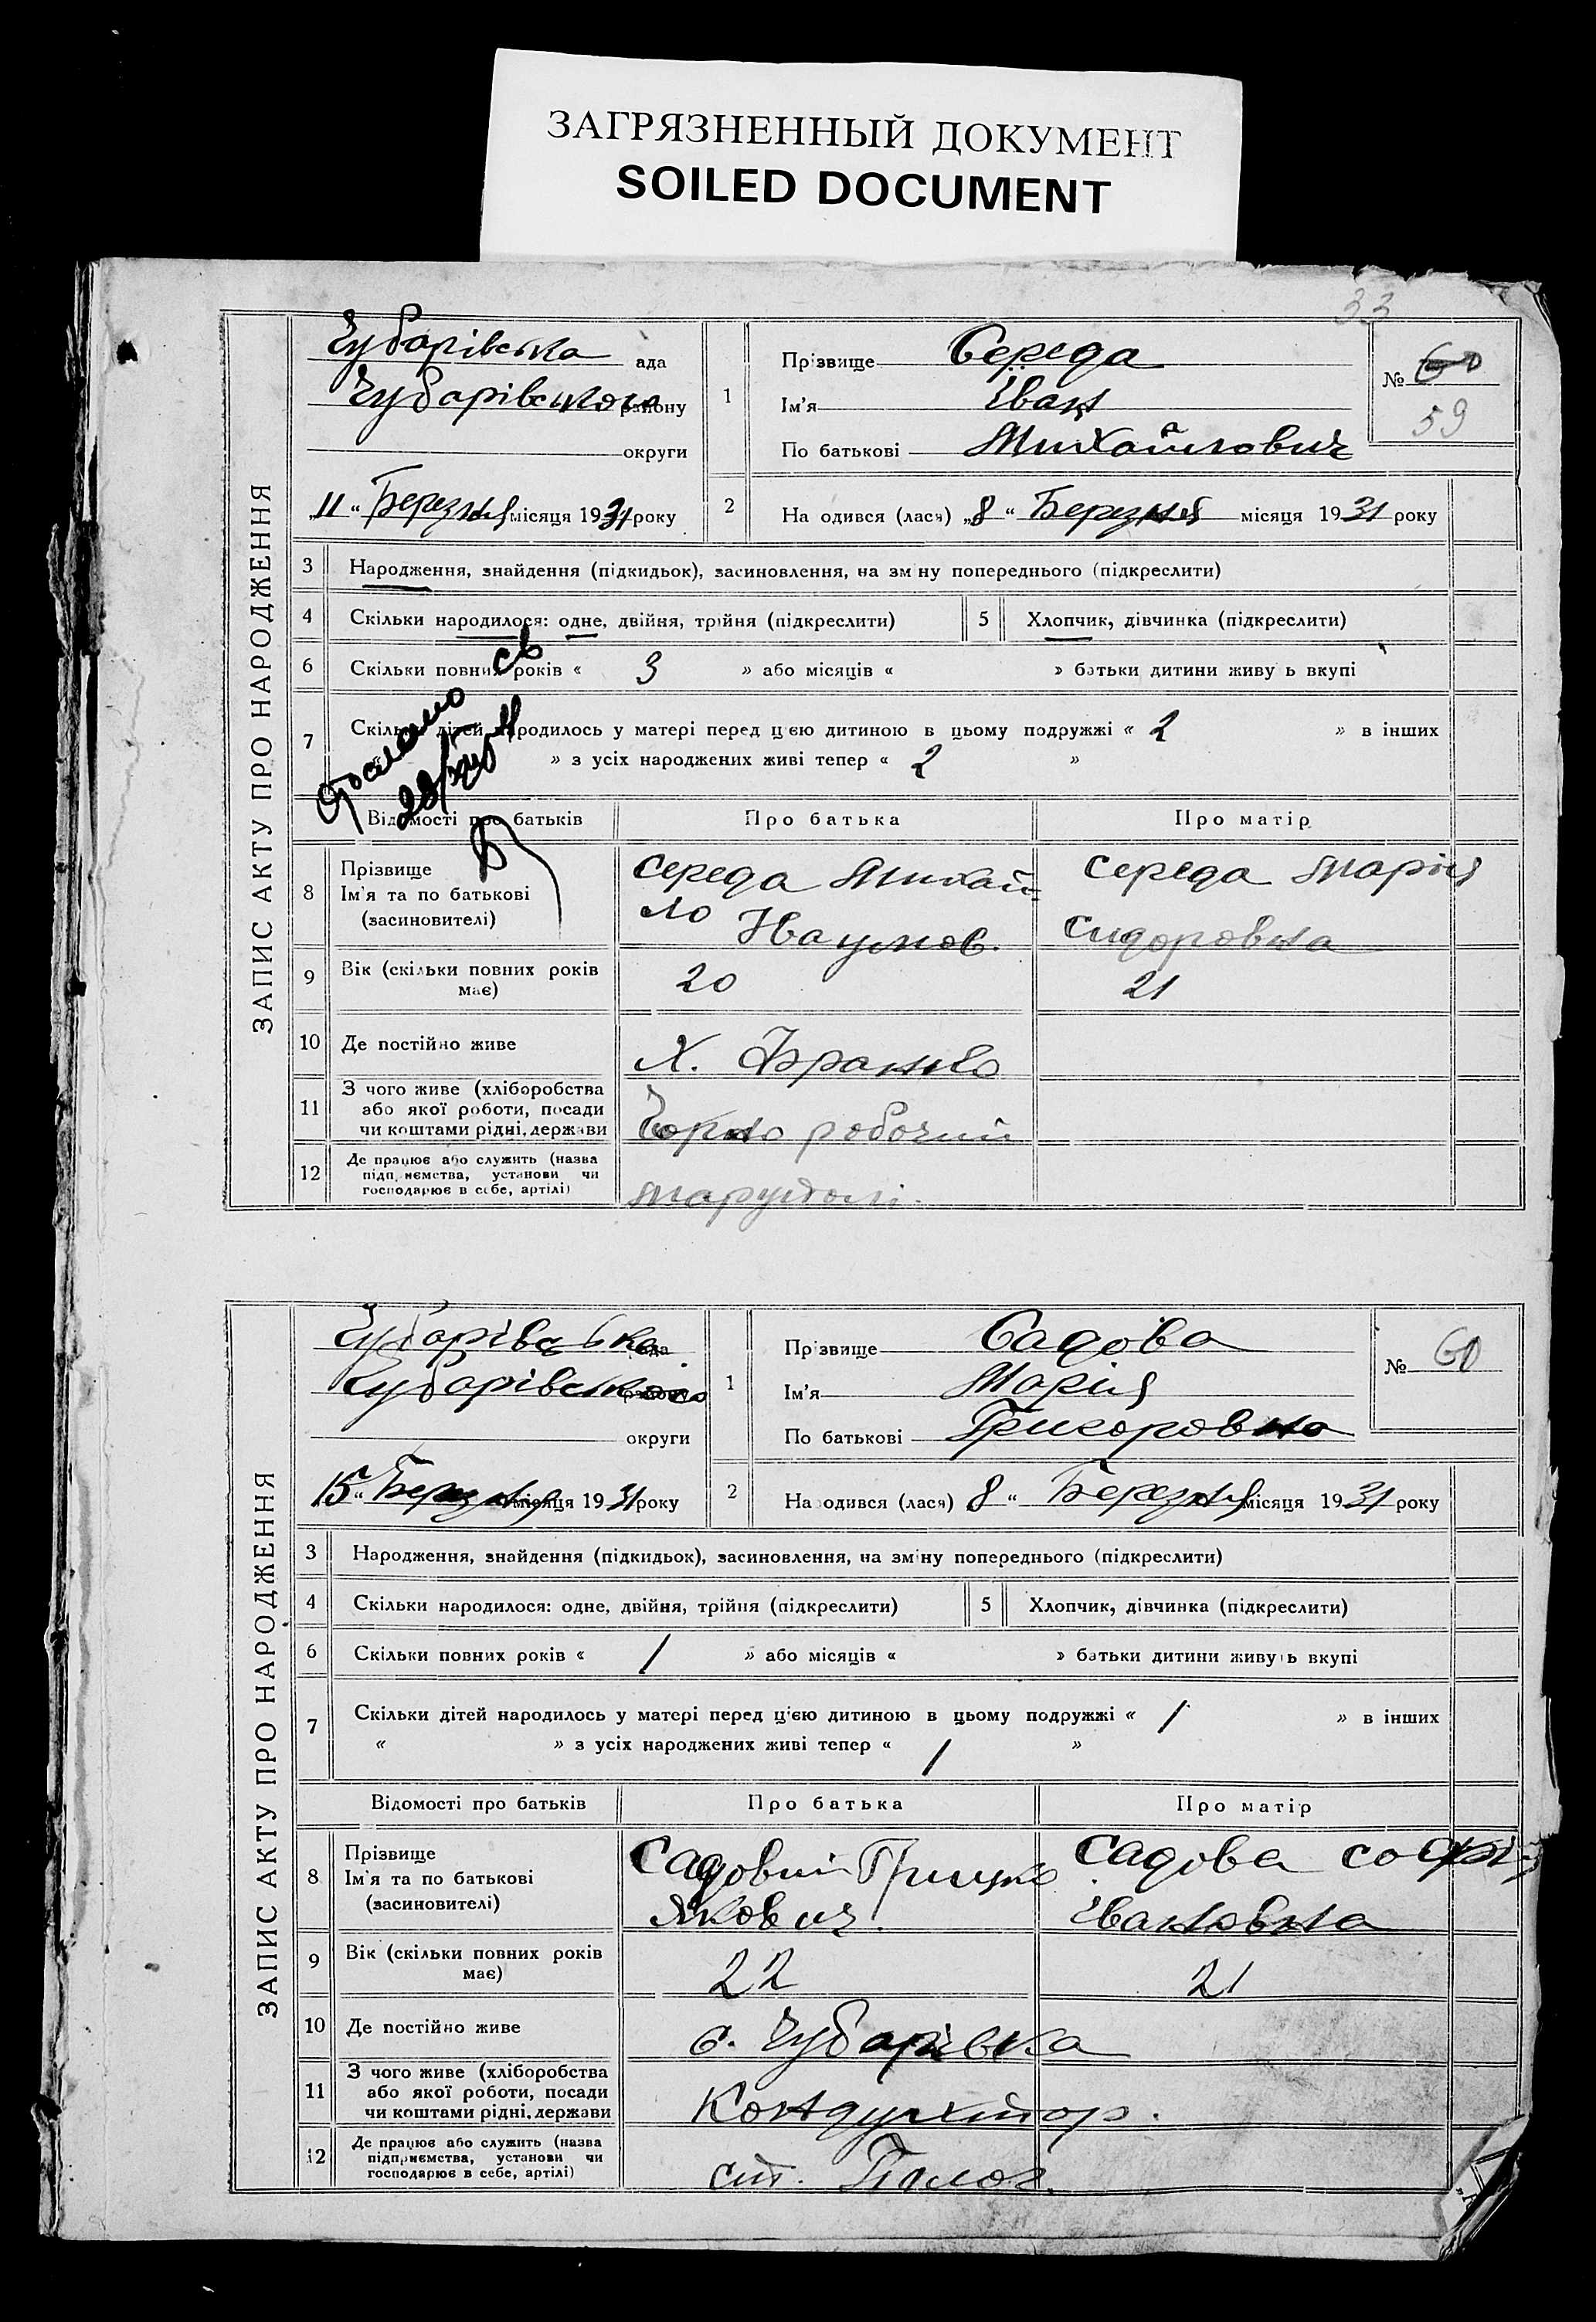 ЗАГРЯЗНЕННЫЙ ДОКУМЕНТ
SOILED DOCUMENT
33
ЗАПИС АКТУ ПРО НАРОДЖЕННЯ
Чубарівська ада
Чубарівського району
округи
„11“ Березня місяця 1931 року
1
Прізвище Середа
Ім'я Іван
По батькові Михайлович
№ 60
59
2
На одився (лася) „8“ Березня місяця 1931 року
3 Народження, знайдення (підкидьок), засиновлення, на зм ну попереднього (підкреслити)
4 Скільки народилося: одне, двійня, трійня (підкреслити)
5 Хлопчик, дівчинка (підкреслити)
6 Скільки повних років « 3 » або місяців « » батьки дитини живу ь вкупі
7 Скільки дітей народилось у матері перед цією дитиною в цьому подружжі « 2 » в інших
« » з усіх народжених живі тепер « 2 »
Відомості про батьків
Про батька
Про матір
8 Прізвище
Ім'я та по батькові
(засиновителі)
Середа Михай-
ло
Наумов.
Середа Марія
Сидоровна
9 Вік (скільки повних років
має)
20
21
10 Де постійно живе
Х.
11 З чого живе (хліборобства
або якої роботи, посади
чи коштами рідні, держави
Чорно робочий
12 Де працює або служить (назва
підприємства, установи чи
господарює в себе, артілі)
ЗАПИС АКТУ ПРО НАРОДЖЕННЯ
Чубарівська ада
Чубарівського району
округи
15“ Березня місяця 1931 року
1
Прізвище Садова
Ім'я Марія
По батькові Григоровна
№ 60
2
На одився (лася) 8 “ Березня місяця 1931 року
3 Народження, знайдення (підкидьок), засиновлення, на зміну попереднього (підкреслити)
4 Скільки народилося: одне, двійня, трійня (підкреслити)
5 Хлопчик, дівчинка (підкреслити)
6 Скільки повних років « 1 » або місяців « » батьки дитини живуть вкупі
7 Скільки дітей народилось у матері перед цією дитиною в цьому подружжі « 1 » в інших
« » з усіх народжених живі тепер « 1 »
Відомості про батьків
Про батька
Про матір
8 Прізвище
Ім'я та по батькові
(засиновителі)
Садовий Грицко
Якович.
Садова Софія
Івановна
9 Вік (скільки повних років
має)
22
21
10 Де постійно живе
с. Чубарівка
11 З чого живе (хліборобства
або якої роботи, посади
чи коштами рідні, держави
Кондуктор.
12 Де працює або служить (назва
підприємства, установи чи
господарює в себе, артілі)
ст. Полог.